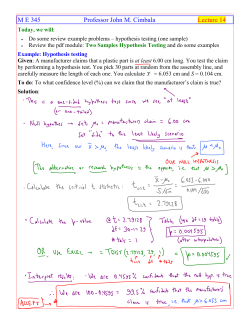 M E 345 Professor John M. Cimbala Lecture 14
Today, we will:
• Do some review example problems – hypothesis testing (one sample)
• Review the pdf module: Two Samples Hypothesis Testing and do some examples
Example: Hypothesis testing
Given: A manufacturer claims that a plastic part is at least 6.00 cm long. You test the claim
by performing a hypothesis test. You pick 30 parts at random from the assembly line, and
carefully measure the length of each one. You calculate x̄ = 6.053 cm and S = 0.104 cm.
To do: To what confidence level (%) can we claim that the manufacturer's claim is true?
Solution:
• This is a one-tail hypothesis test since we see "at least"
(t → one-tailed)
• Null hypoth → set μ₀ = manufacturer's claim = 6.00 cm
Set to the least likely scenario
Here, since our x̄ > μ₀, the least likely scenario is that μ < μ₀
OUR NULL HYPOTHESIS
[The alternative or research hypothesis is the opposite, i.e. that μ > μ₀]
• Calculate the critical t statistic:
t = (x̄ - μ₀) / (S/√n) = (6.053 - 6.000) / (0.104/√30)
t = 2.79128
• Calculate the p-value @ t = 2.79128
df = 30-1 = 29
# tails = 1
Table (row df = 29 table)
p = 0.004595
(after interpolation)
OR Use EXCEL → = TDIST(2.79128, 29, 1)
t df # tails
• Interpret results: We are 0.4595% confident that the null hyp is true
∴ We are 100 - 0.4595 = 99.5% confident that the manufacturer's
claim is true
ANSWER